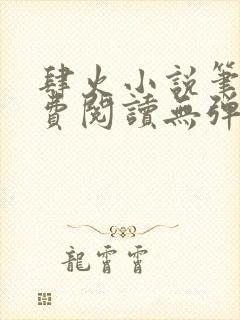 肆火小説筆
費閱讀無彈
龍霄霄